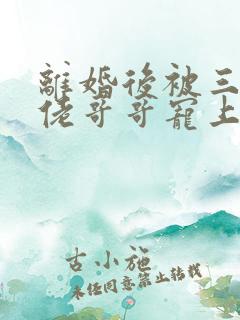 離婚後被三
佬哥哥寵上
古小施
未任同意禁止转载